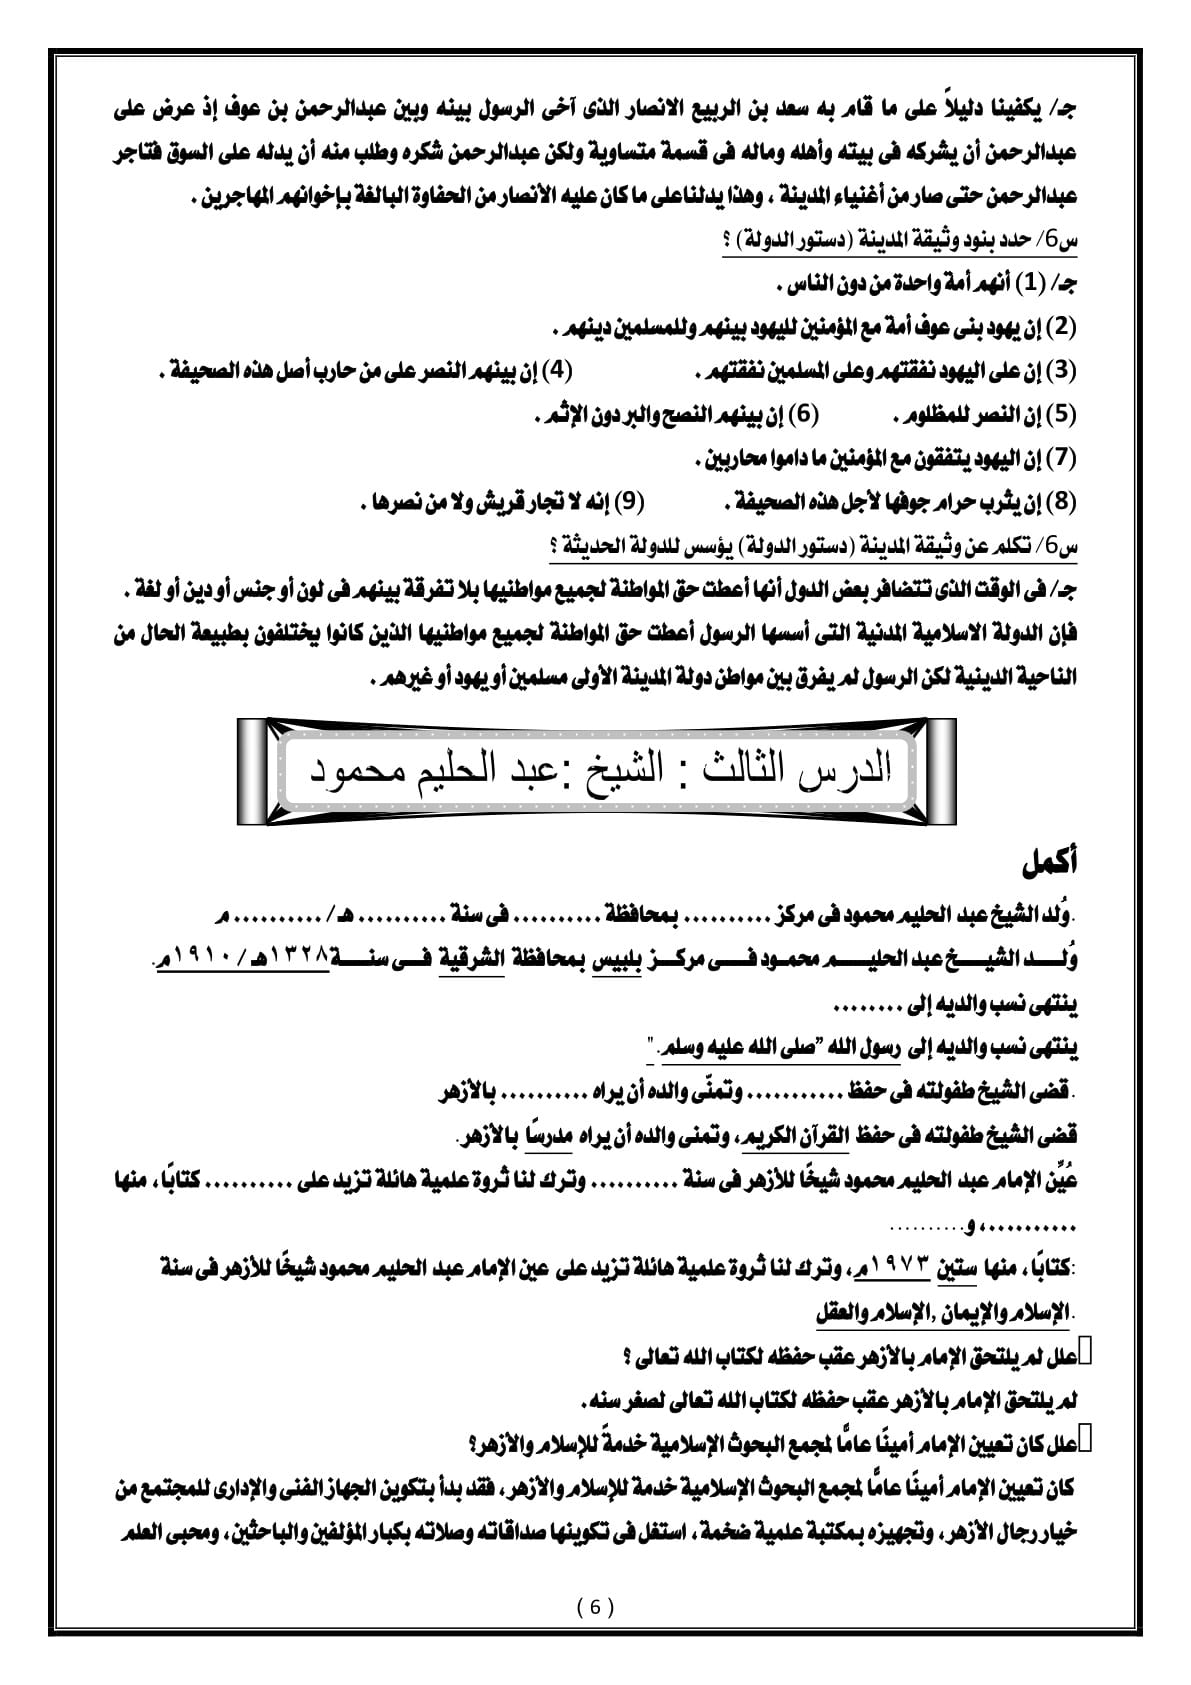 جـ/ يكفينا دليلاً على ما قام به سعد بن الربيع الانصار الذى آخى الرسول بينه وبين عبدالرحمن بن عوف إذ عرض على
عبدالرحمن أن يشركه فى بيته وأهله وماله فى قسمة متساوية ولكن عبدالرحمن شكره وطلب منه أن يدله على السوق فتاجر
عبدالرحمن حتى صار من أغنياء المدينة ، وهذا يدلناعلى ما كان عليه الأنصار من الحفاوة البالغة بإخوانهم المهاجرين .
س6/ حدد بنود وثيقة المدينة (دستور الدولة) ؟
جـ/ (1) أنهم أمة واحدة من دون الناس .
(2) إن يهود بنى عوف أمة مع المؤمنين لليهود بينهم وللمسلمين دينهم .
(3) إن على اليهود نفقتهم وعلى المسلمين نفقتهم . (4) إن بينهم النصر على من حارب أصل هذه الصحيفة .
(5) إن النصر للمظلوم . (6) إن بينهم النصح والبر دون الإثم .
(7) إن اليهود يتفقون مع المؤمنين ما داموا محاربين .
(8) إن يثرب حرام جوفها لأجل هذه الصحيفة . (9) إنه لا تجار قريش ولا من نصرها .
س6/ تكلم عن وثيقة المدينة (دستور الدولة) يؤسس للدولة الحديثة ؟
جـ/ فى الوقت الذى تتضافر بعض الدول أنها أعطت حق المواطنة لجميع مواطنيها بلا تفرقة بينهم فى لون أو جنس أو دين أو لغة .
فإن الدولة الاسلامية المدنية التى أسسها الرسول أعطت حق المواطنة لجميع مواطنيها الذين كانوا يختلفون بطبيعة الحال من
الناحية الدينية لكن الرسول لم يفرق بين مواطن دولة المدينة الأولى مسلمين أو يهود أو غيرهم .
الدرس الثالث : الشيخ :عبد الحليم محمود
أكمل
.وُلد الشيخ عبد الحليم محمود فى مركز .......... بمحافظة .......... فى سنة .......... هـ/ .......... م
وُلــد الشيــخ عبد الحليــم محمـود فــى مركـز بلبيس بمحافظة الشرقية فــى سنــة١٣٢٨هـ / ١٩١٠م.
ينتهى نسب والديه إلى ........
ينتهى نسب والديه إلى رسول الله "صلى الله عليه وسلم. "
.قضى الشيخ طفولته فى حفظ ........... وتمنّى والده أن يراه .......... بالأزهر
قضى الشيخ طفولته فى حفظ القرآن الكريم، وتمنى والده أن يراه مدرسًا بالأزهر.
عُيِّن الإمام عبد الحليم محمود شيخًا للأزهر فى سنة .......... وترك لنا ثروة علمية هائلة تزيد على .......... كتابًا، منها
..........، و..........
:كتابًا، منها ستين ١٩٧٣م، وترك لنا ثروة علمية هائلة تزيد على عين الإمام عبد الحليم محمود شيخًا للأزهر فى سنة
.الإسلام والإيمان ,الإسلام والعقل
علل لم يلتحق الإمام بالأزهر عقب حفظه لكتاب الله تعالى ؟
لم يلتحق الإمام بالأزهر عقب حفظه لكتاب الله تعالى لصغر سنه.
علل كان تعيين الإمام أمينًا عامًّا لمجمع البحوث الإسلامية خدمةً للإسلام والأزهر؟
كان تعيين الإمام أمينًا عامًّا لمجمع البحوث الإسلامية خدمة للإسلام والأزهر، فقد بدأ بتكوين الجهاز الفنى والإدارى للمجتمع من
خيار رجال الأزهر، وتجهيزه بمكتبة علمية ضخمة، استغل فى تكوينها صداقاته وصلاته بكبار المؤلفين والباحثين، ومحبى العلم
( 6 )